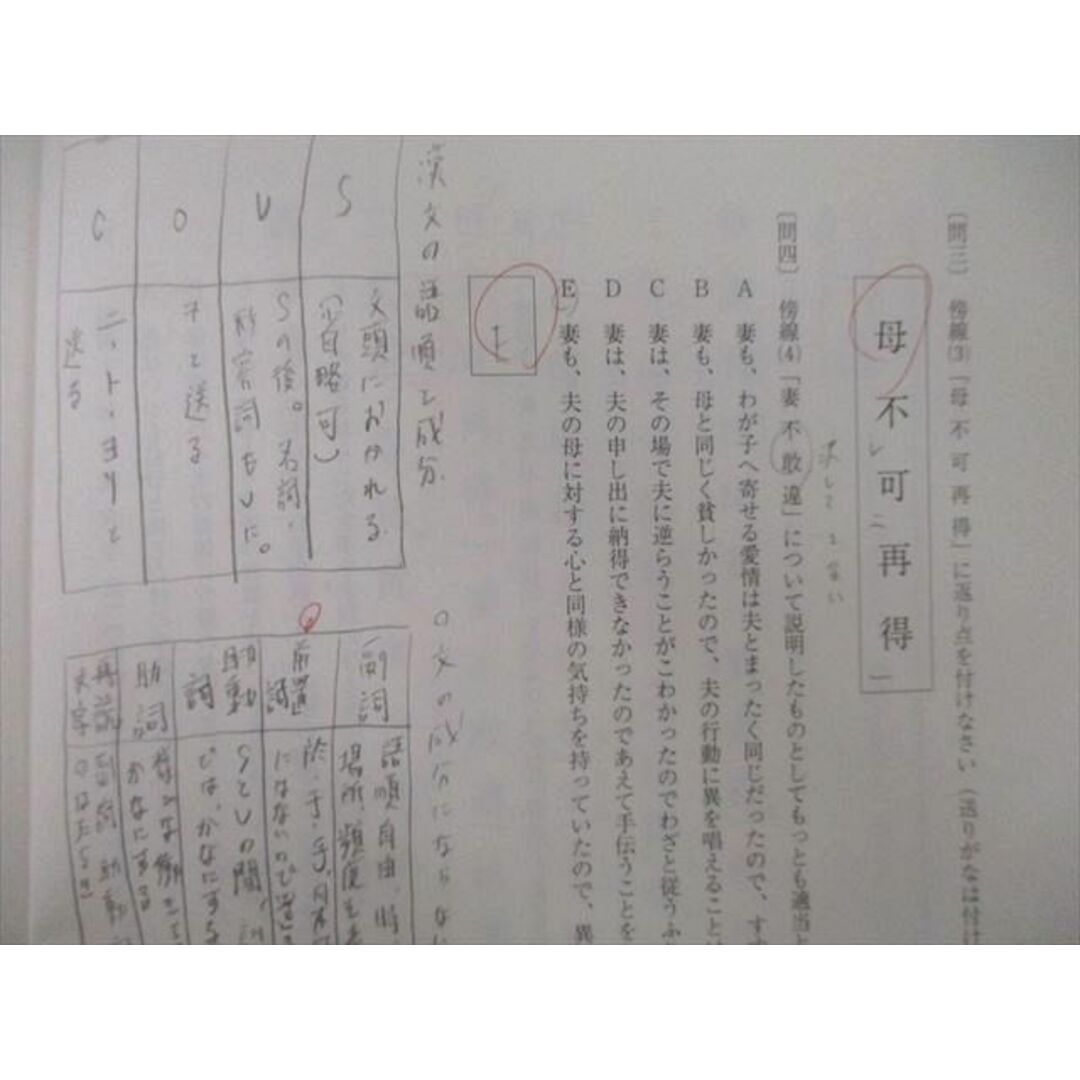 〔問三〕 傍線(3)「母 不 可 再 得」に返り点を付けなさい（送りがなは付け
母不レ可二再得一
〔問四〕 傍線(4)「妻 不 敢 違」について説明したものとしてもっとも適当と
A 妻も、わが子へ寄せる愛情は夫とまったく同じだったので、す
B 妻も、母と同じく貧しかったので、夫の行動に異を唱えることは
C 妻は、その場で夫に逆らうことがこわかったのでわざと従うふ
D 妻は、夫の申し出に納得できなかったのであえて手伝うことを
E 妻も、夫の母に対する心と同様の気持ちを持っていたので、異
E
漢文の語順と成分
S
文頭におかれる
（省略可）
V
Sの後。名詞・
形容詞もVに。
O
ヲと送る
C
ニ・ト・ヨリと
送る
○文の成分にならな
副詞
語順自由。時、
場所、頻度を
前置詞
於・于・乎
にはないので
助動詞
SとVの間、
では、かなにする
助詞
かなにする
再読文字